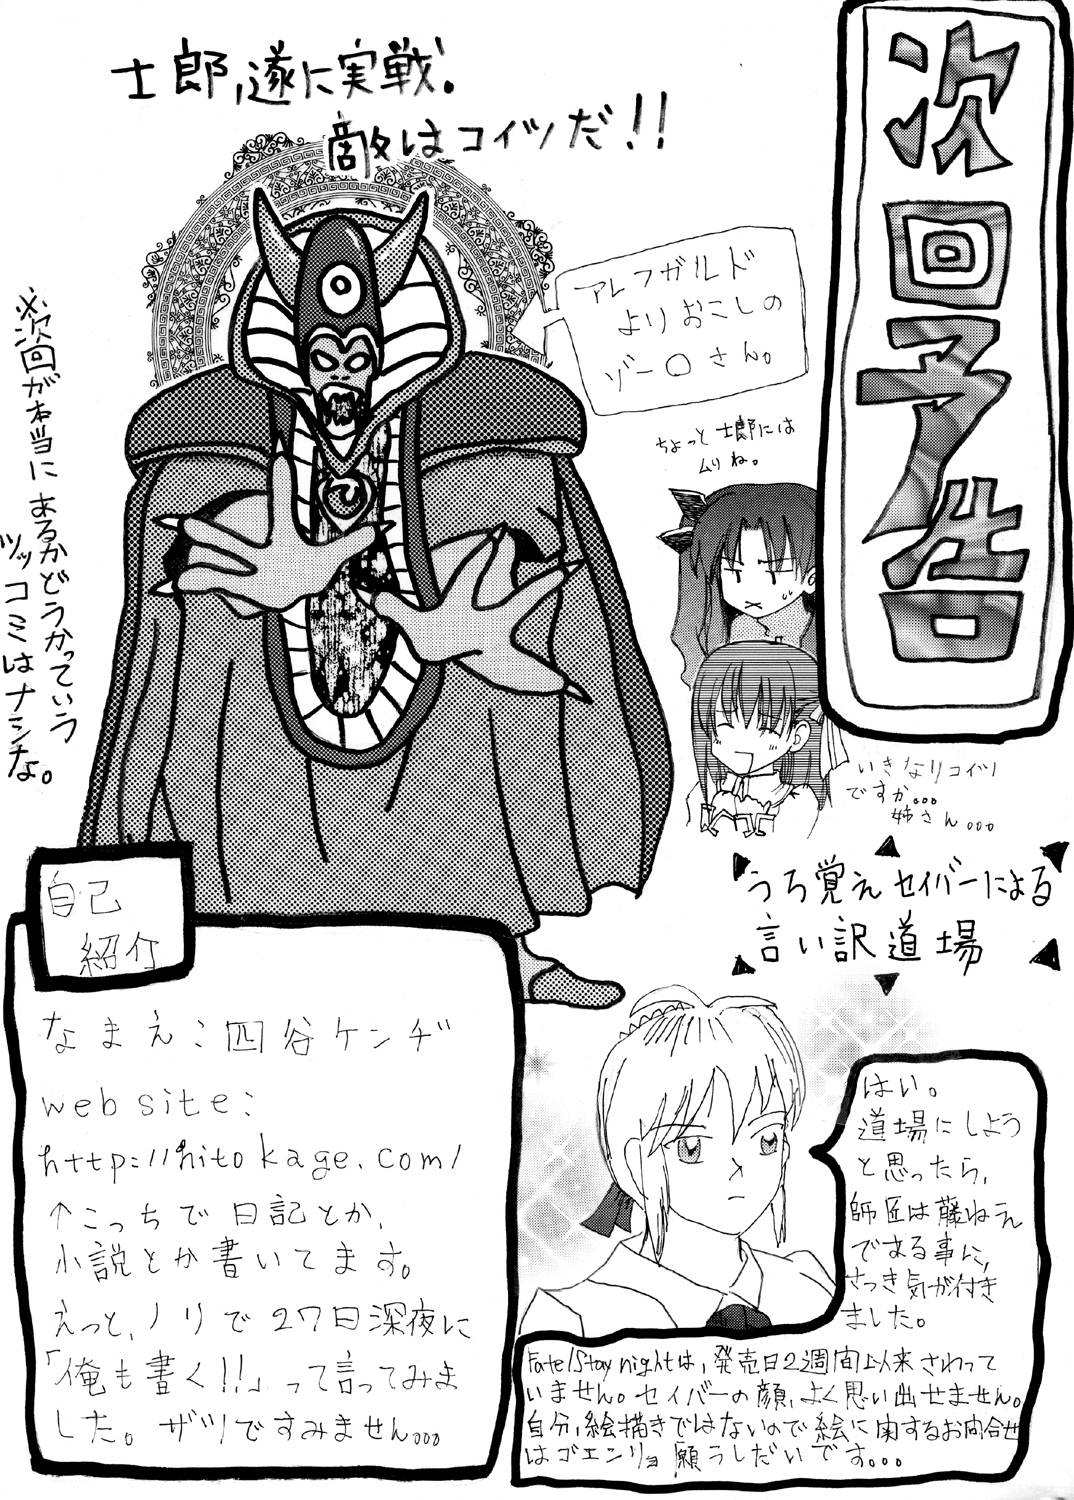 次回予告
士郎,遂に実戦。
敵はコイツだ!!
アレフガルド
よりおこしの
ゾーロさん。
ちょっと士郎には
ムリね。
いきなりコイツ
ですか...
姉さん...
※次回が本当にあるかどうかっていう
ツッコミはナシチな。
うろ覚えセイバーによる
言い訳道場
はい。
道場にしよう
と思ったら,
師匠は藤ねえ
である事に,
さっき気が付き
ました。
Fate/Stay nightは,発売日2週間以来さわって
いません。セイバーの顔,よく思い出せません。
自分,絵描きではないので絵に関するお問合せ
はゴエンリョ願うしだいです...
自己
紹介
なまえ:四谷ケンヂ
web site:
http://hitokage.com/
↑こっちで日記とか,
小説とか書いてます。
えっと,ノリで27日深夜に
「俺も書く!!」って言ってみま
した。ザツですみません...